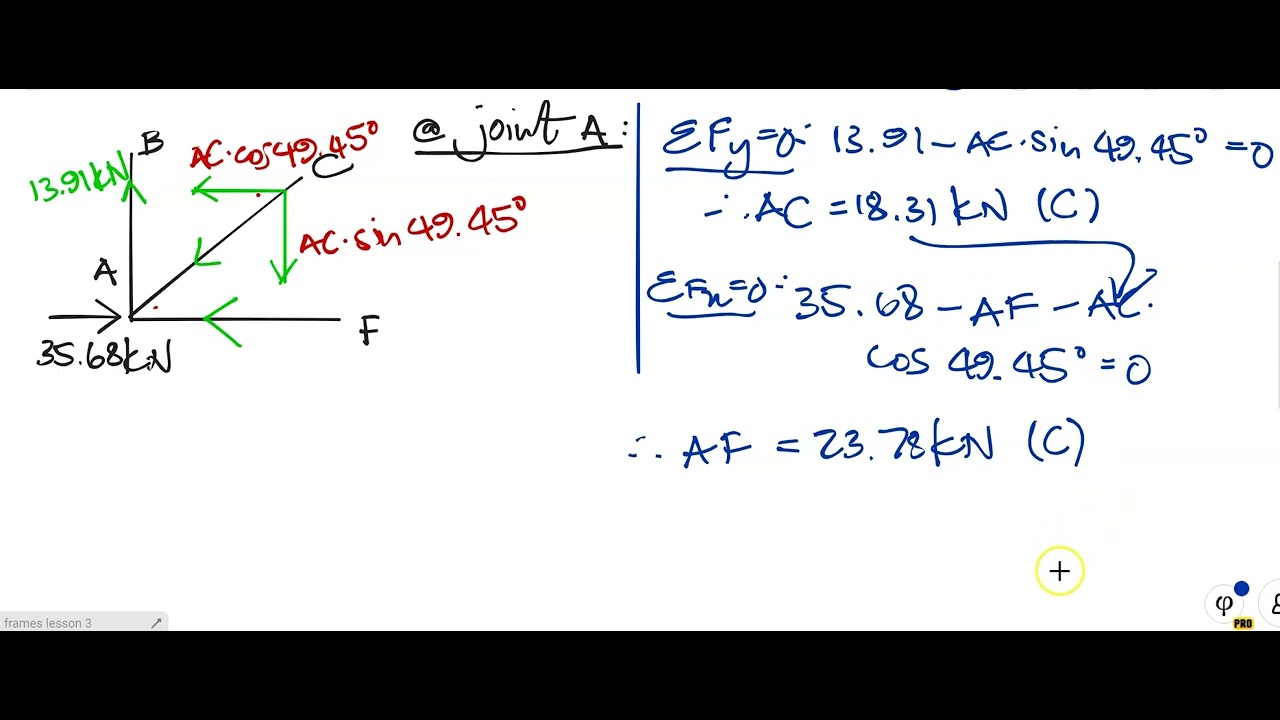 @ joint A:
B
13.91kN
AC·cos 49.45°
C
AC·sin 49.45°
A
F
35.68kN
ΣFy=0: 13.91 - AC·sin 49.45° = 0
∴ AC = 18.31 kN (C)
ΣFx=0: 35.68 - AF - AC·
cos 49.45° = 0
∴ AF = 23.78kN (C)
frames lesson 3
φ
PRO